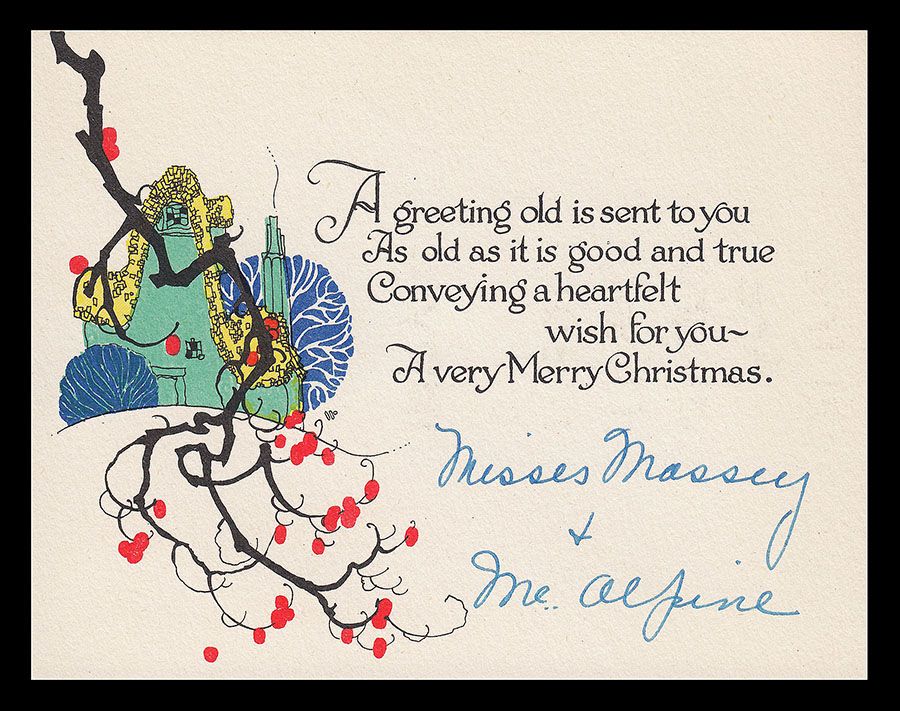 A greeting old is sent to you
As old as it is good and true
Conveying a heartfelt
wish for you~
A very Merry Christmas.
Misses Massey
&
Mc. Alpine